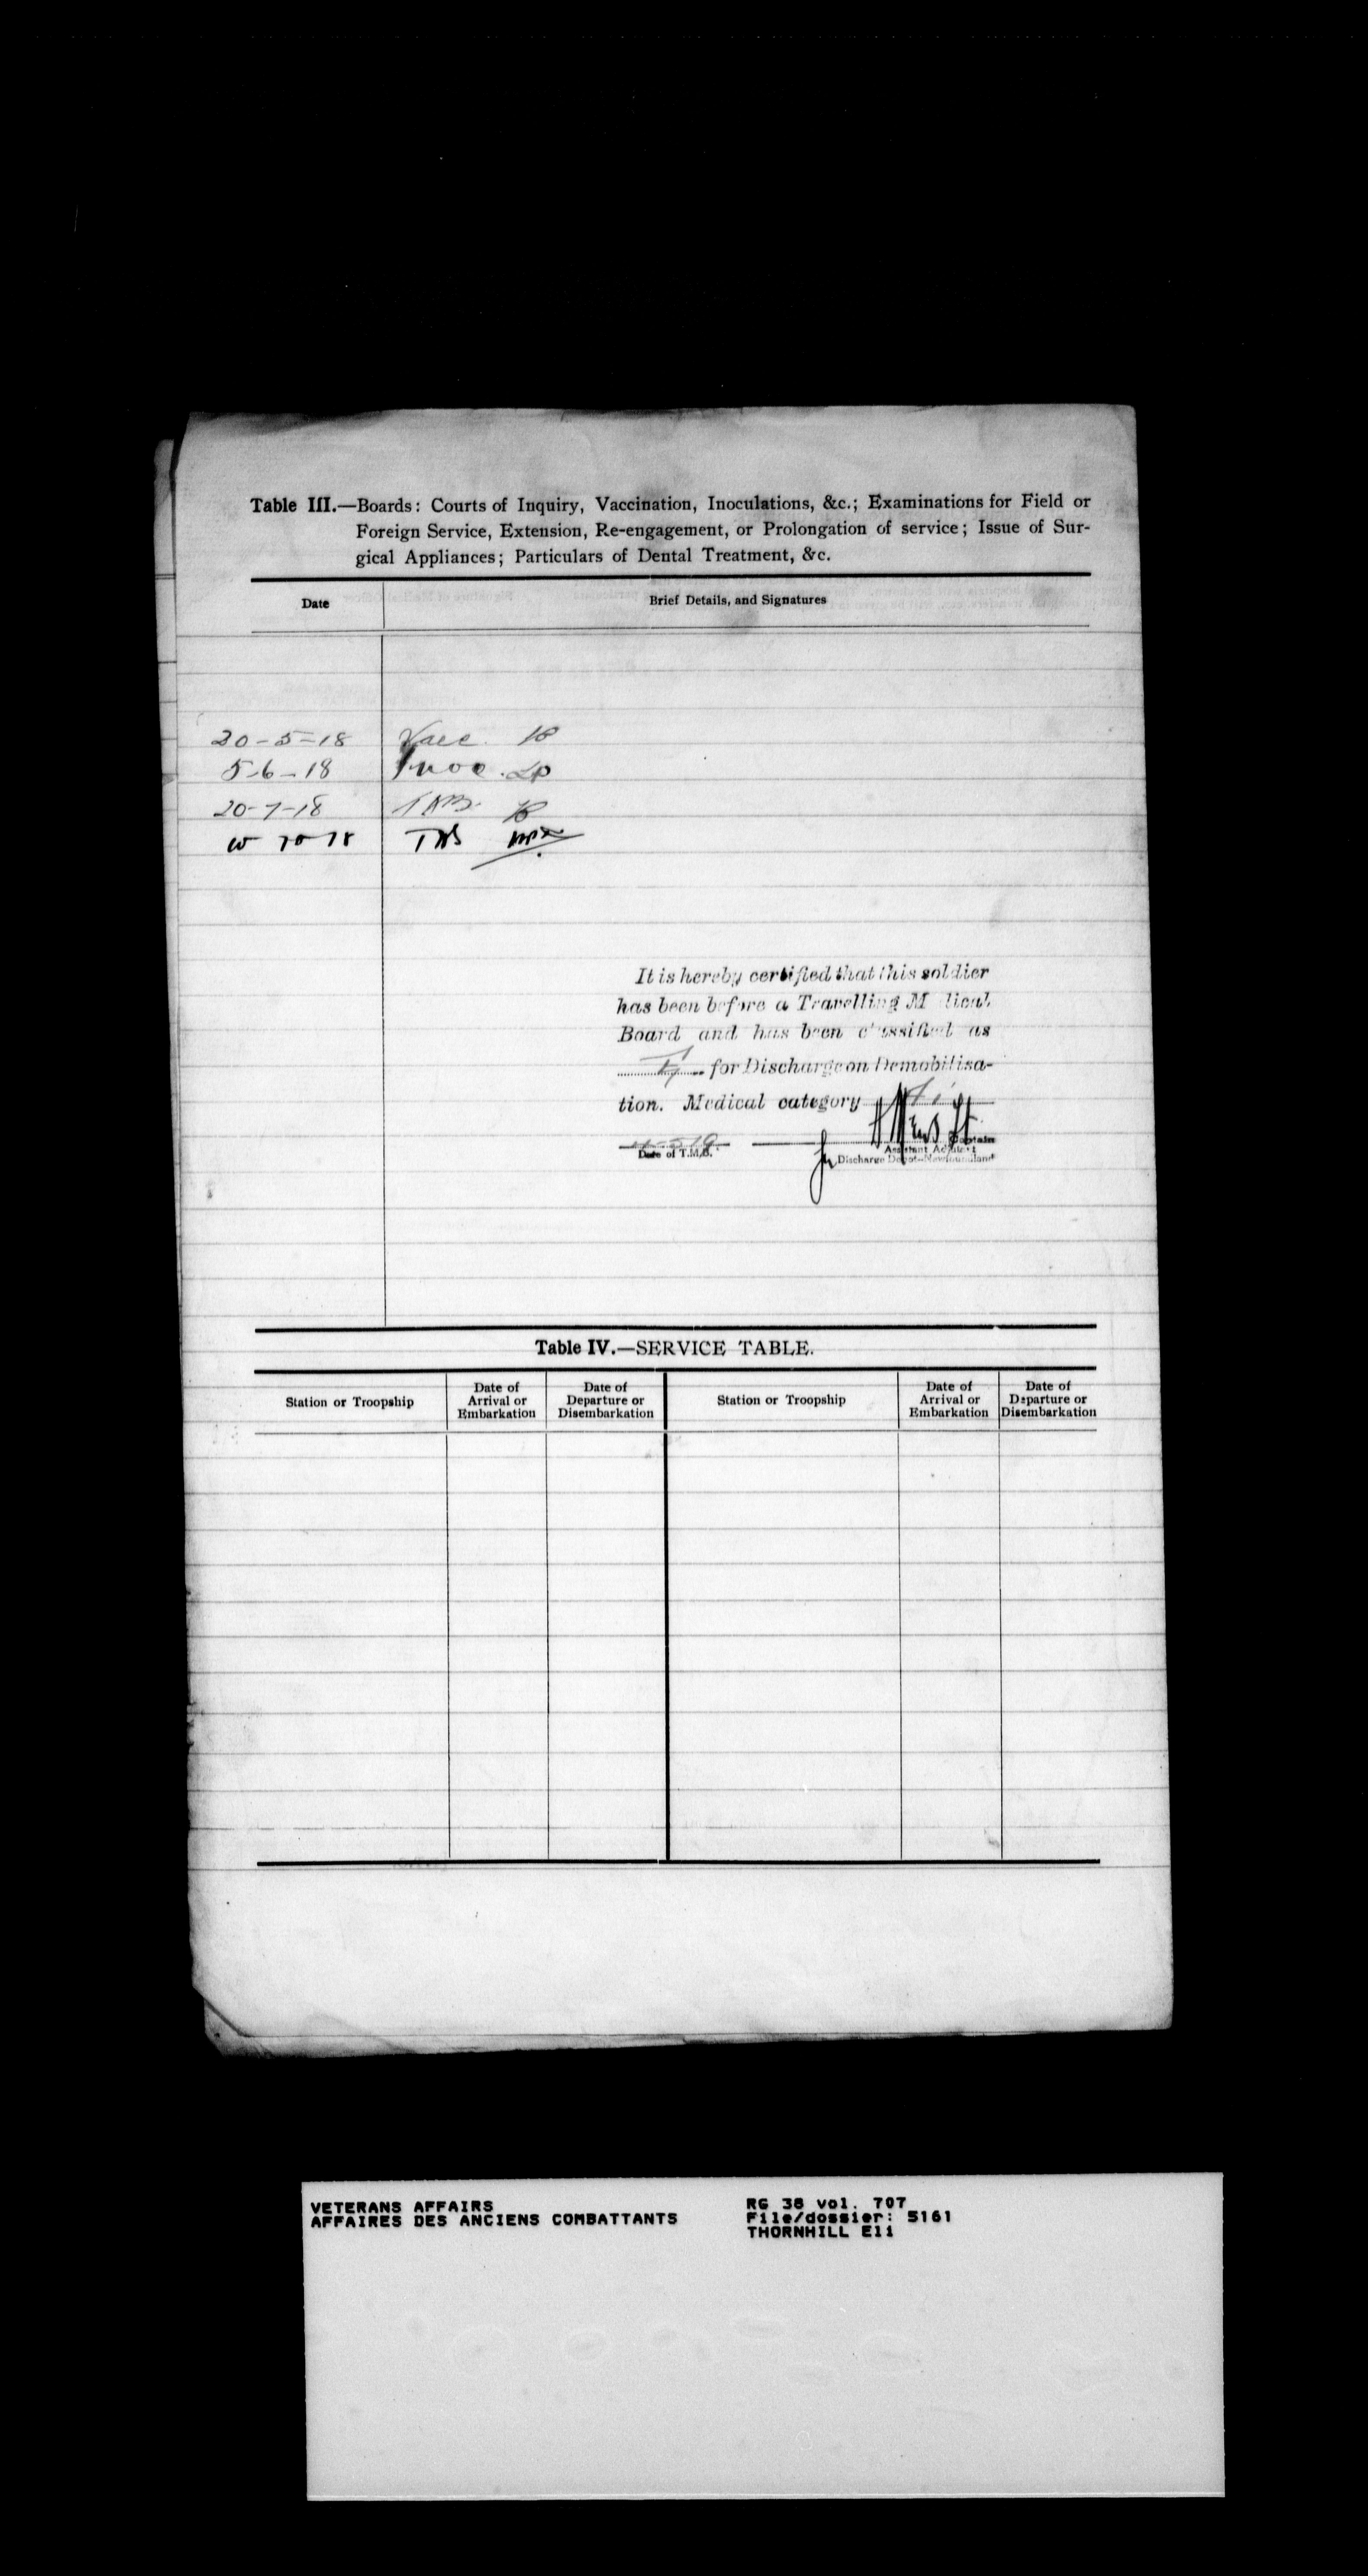 Table III.—Boards: Courts of Inquiry, Vaccination, Inoculations, &c.; Examinations for Field or
Foreign Service, Extension, Re-engagement, or Prolongation of service; Issue of Sur-
gical Appliances; Particulars of Dental Treatment, &c.
Date
Brief Details, and Signatures
30-5-18 Vacc.
5-6-18 Inoc.
20-7-18 TAB
TAB
It is hereby certified that this soldier
has been before a Travelling M dical
Board and has been classified as
for Discharge on Demobilisa-
tion. Medical category
Captain
Date of T.M.B.
Assistant Adjutant
Discharge Depot-Newfoundland
Table IV.—SERVICE TABLE.
Station or Troopship
Date of Arrival or Embarkation
Date of Departure or Disembarkation
Station or Troopship
Date of Arrival or Embarkation
Date of Departure or Disembarkation
VETERANS AFFAIRS
AFFAIRES DES ANCIENS COMBATTANTS
RG 38 vol. 707
File/dossier: 5161
THORNHILL Eli